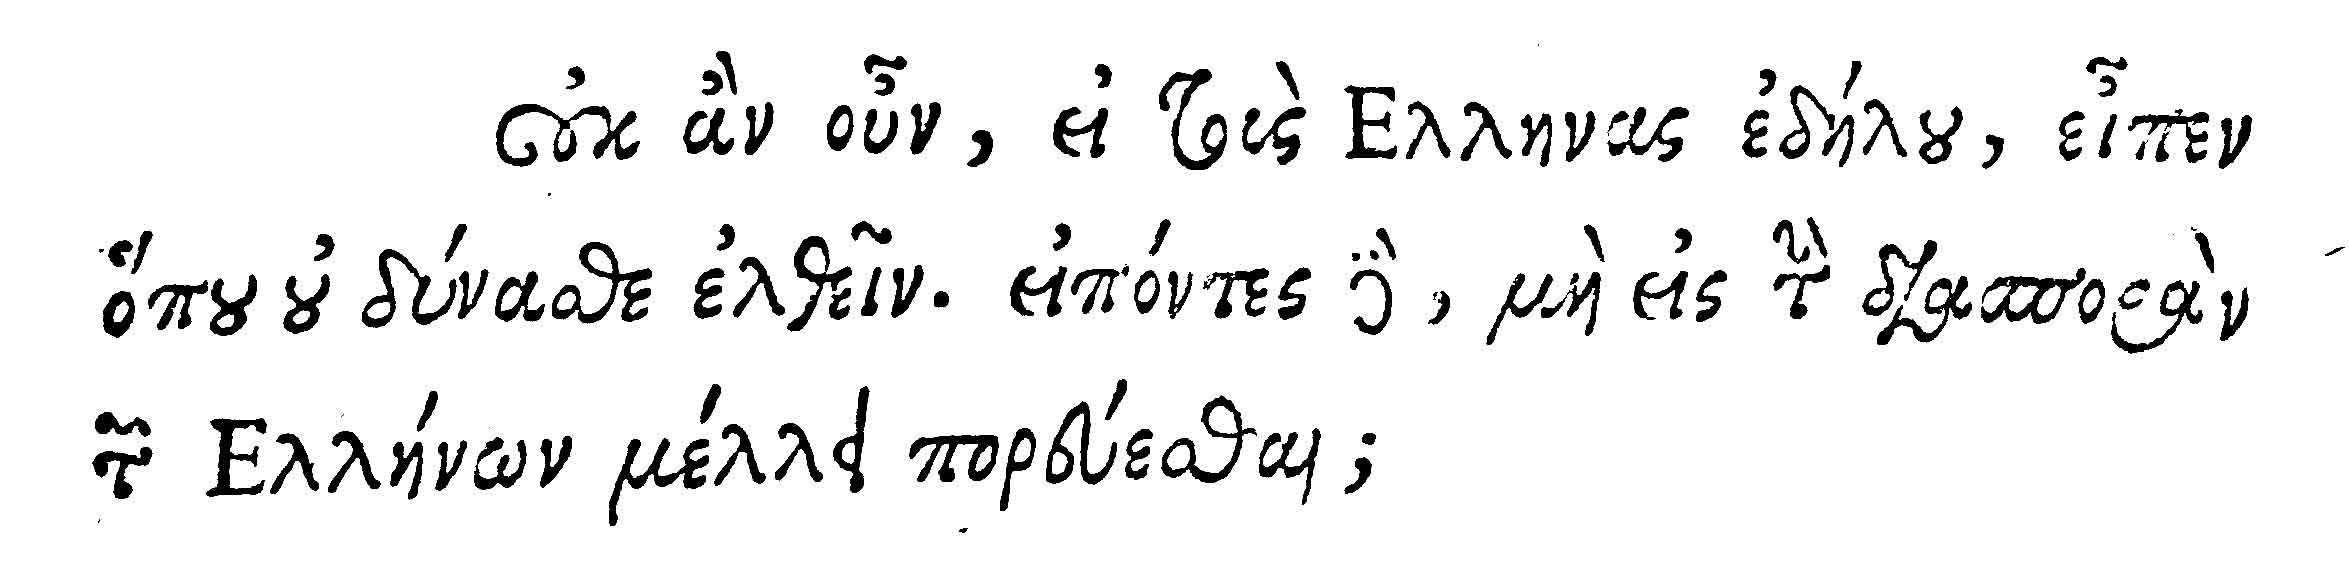 οὐκ ἂν οὖν, εἰ τοὺς Ελληνας ἐδήλου, εἶπεν
ὅπου οὐ δύνασθε ἐλθεῖν. εἰπόντες δὲ, μὴ εἰς τὴν διασπορὰν
τῶν Ελλήνων μέλλει πορεύεσθαι;